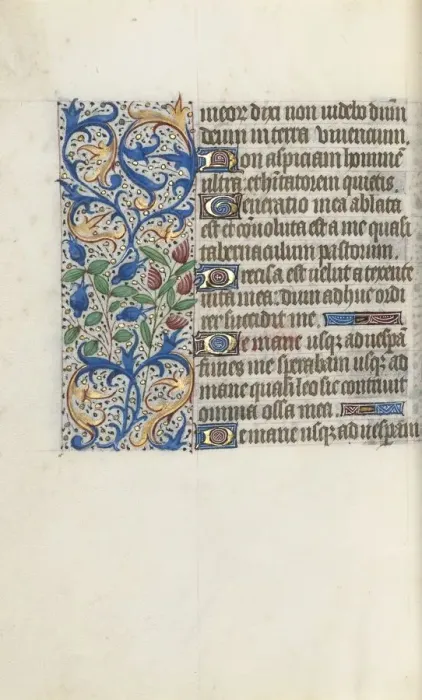 uieor dixi non uidebo dnm
deum in terra viuencium.
Non aspiciam hominē
ultra: et hitatorem quietis.
Generatio mea ablata
est et conuoluta est a me quasi
tabernaculum pastorum.
Precisa est uelut a texente
uita mea: dum adhuc ordi
rer succidit me.
De mane usqȝ ad uespa
finies me sperabam usqȝ ad
mane quasi leo sic contriuit
omnia ossa mea.
De mane usqȝ ad uesperam